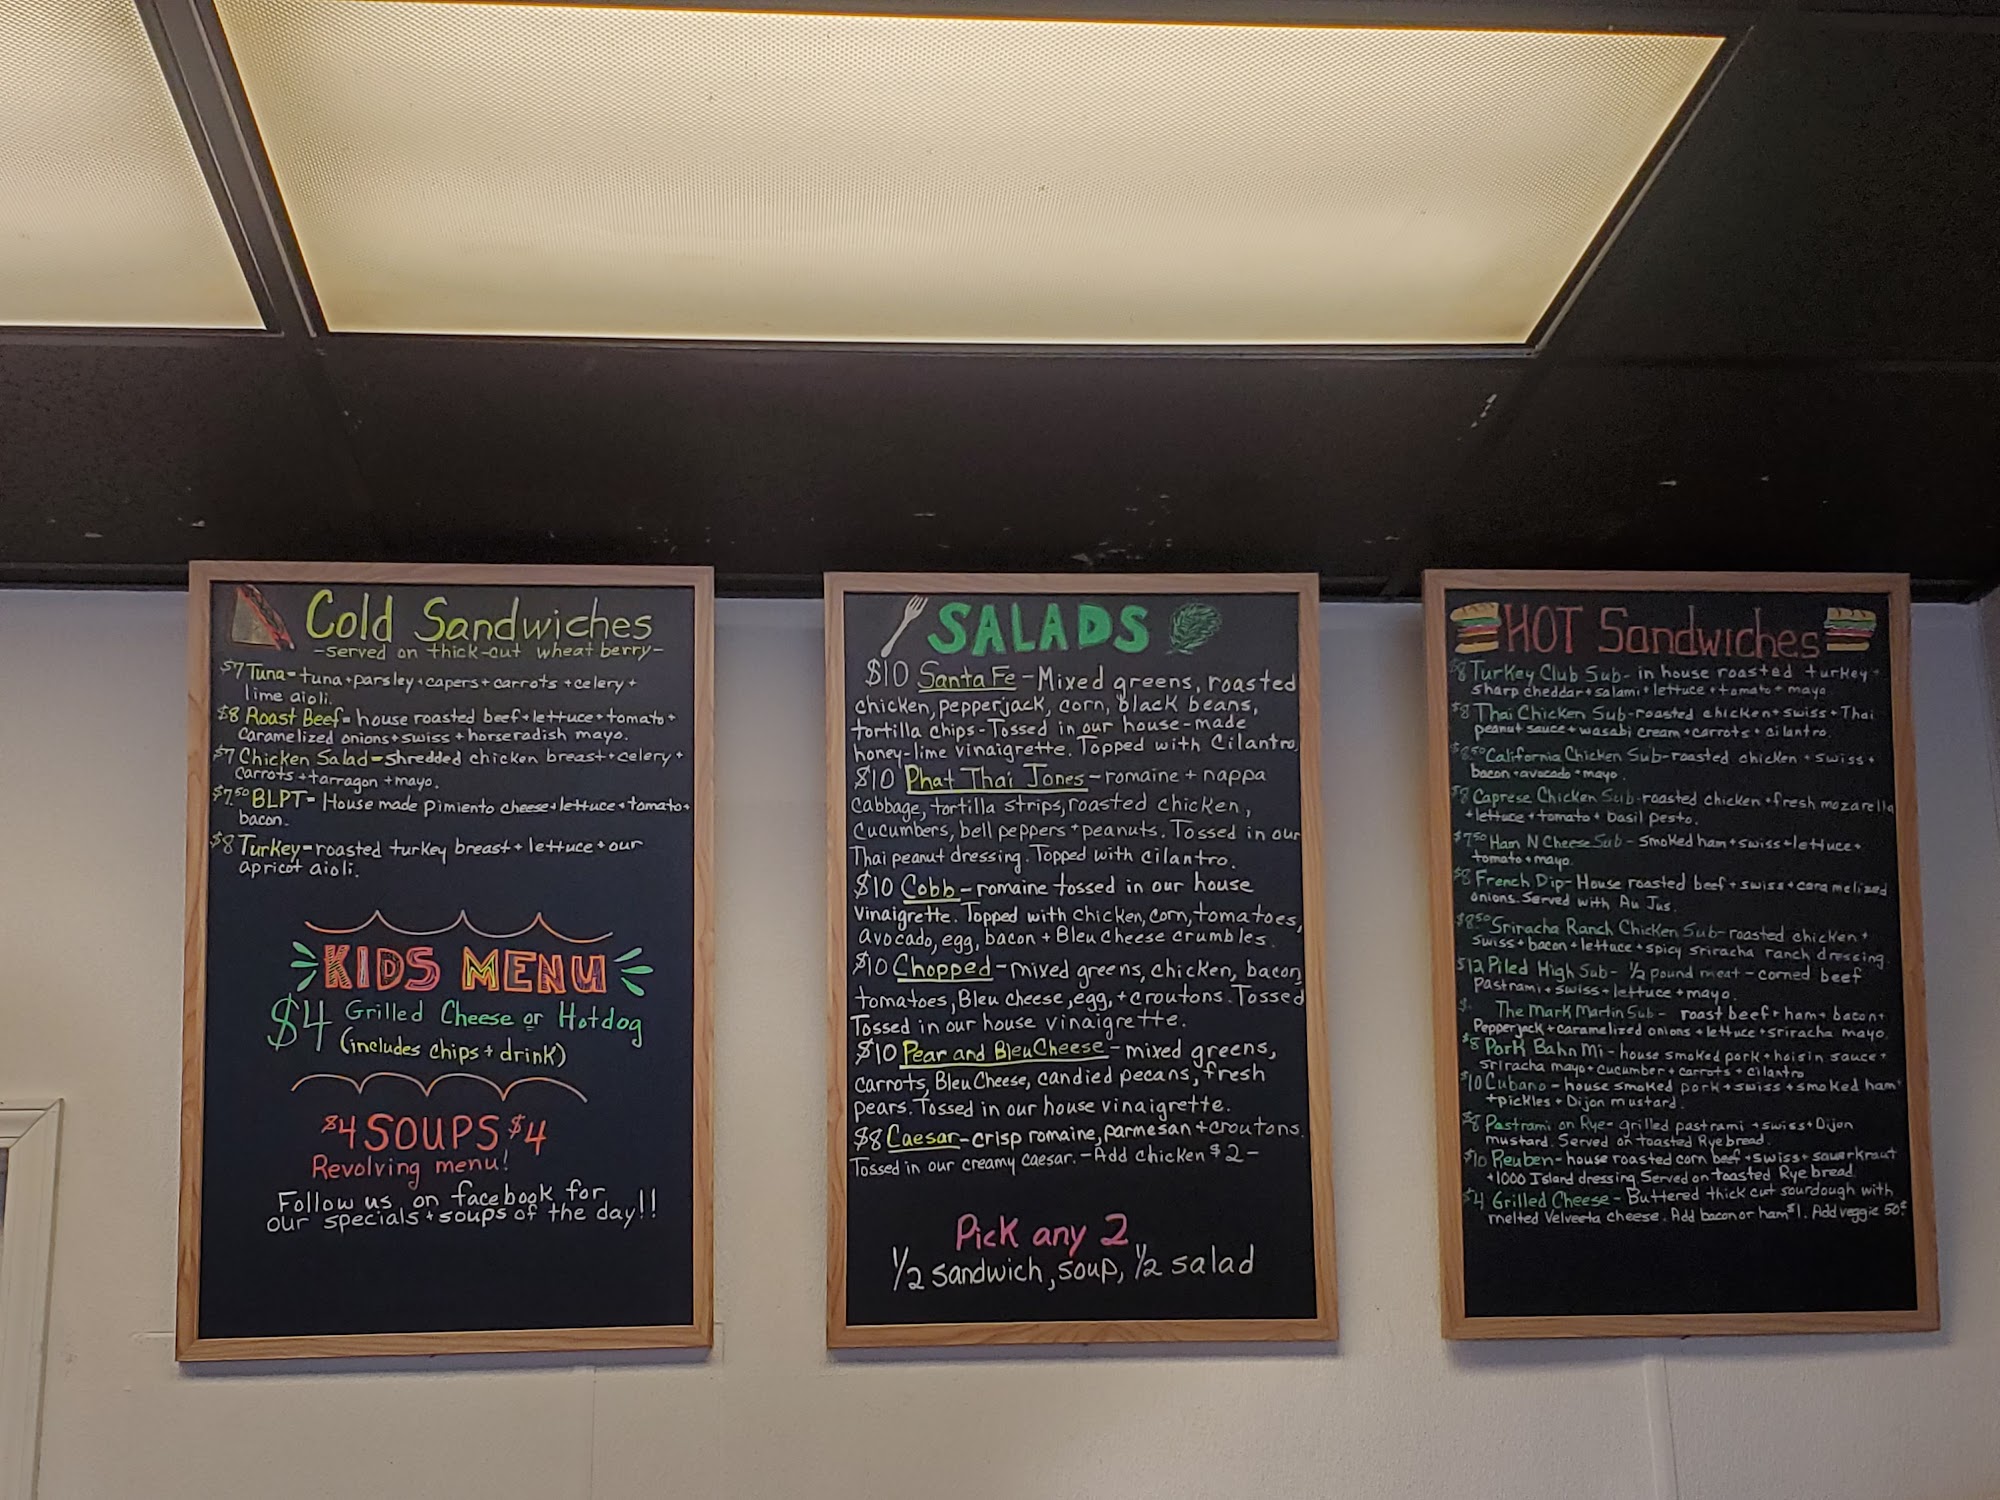 Cold Sandwiches
-served on thick-cut wheat berry-
$7 Tuna-tuna+parsley+capers+carrots+celery+
lime aioli.
$8 Roast Beef-house roasted beef+lettuce+tomato+
caramelized onions+swiss+horseradish mayo.
$7 Chicken Salad-shredded chicken breast+celery+
carrots+tarragon+mayo.
$7.50 BLPT-House made pimiento cheese+lettuce+tomato+
bacon.
$8 Turkey-roasted turkey breast+lettuce+our
apricot aioli.
KIDS MENU
$4 Grilled Cheese or Hotdog
(includes chips + drink)
$4 SOUPS $4
Revolving menu!
Follow us on facebook for
our specials + soups of the day!!
SALADS
$10 Santa Fe-Mixed greens, roasted
chicken, pepperjack, corn, black beans,
tortilla chips-Tossed in our house-made
honey-lime vinaigrette. Topped with Cilantro.
$10 Phat Thai Jones-romaine + nappa
cabbage, tortilla strips, roasted chicken,
cucumbers, bell peppers + peanuts. Tossed in our
Thai peanut dressing. Topped with cilantro.
$10 Cobb-romaine tossed in our house
vinaigrette. Topped with chicken, corn, tomatoes,
avocado, egg, bacon + Bleu Cheese crumbles.
$10 Chopped-mixed greens, chicken, bacon,
tomatoes, Bleu cheese, egg, + croutons. Tossed
Tossed in our house vinaigrette.
$10 Pear and Bleu Cheese-mixed greens,
carrots, Bleu Cheese, candied pecans, fresh
pears. Tossed in our house vinaigrette.
$8 Caesar-crisp romaine, parmesan + croutons.
Tossed in our creamy caesar. -Add chicken $2-
Pick any 2
1/2 sandwich, soup, 1/2 salad
HOT Sandwiches
$8 Turkey Club Sub- in house roasted turkey+
sharp cheddar+salami+lettuce+tomato+mayo
$8 Thai Chicken Sub-roasted chicken+swiss+Thai
peanut sauce+wasabi cream+carrots+cilantro.
$8.50 California Chicken Sub-roasted chicken+swiss+
bacon+avocado+mayo.
$8 Caprese Chicken Sub-roasted chicken+fresh mozarella
+lettuce+tomato+basil pesto.
$7.50 Ham N Cheese Sub-smoked ham+swiss+lettuce+
tomato+mayo.
$8 French Dip-House roasted beef+swiss+caramelized
onions. Served with Au Jus.
$8.50 Sriracha Ranch Chicken Sub-roasted chicken+
swiss+bacon+lettuce+spicy sriracha ranch dressing.
$12 Piled High Sub- 1/2 pound meat-corned beef
Pastrami+swiss+lettuce+mayo.
$ The Mark Martin Sub- roast beef+ham+bacon+
Pepperjack+caramelized onions+lettuce+sriracha mayo.
$8 Pork Bahn Mi-house smoked pork+hoisin sauce+
sriracha mayo+cucumber+carrots+cilantro
$10 Cubano-house smoked pork+swiss+smoked ham+
+pickles+Dijon mustard.
$8 Pastrami on Rye-grilled pastrami+swiss+Dijon
mustard. Served on toasted Rye bread.
$10 Reuben-house roasted corn beef+swiss+sauerkraut
+1000 Island dressing. Served on toasted Rye bread
$4 Grilled Cheese-Buttered thick cut sourdough with
melted Velveeta cheese. Add bacon or ham $1. Add veggie 50¢